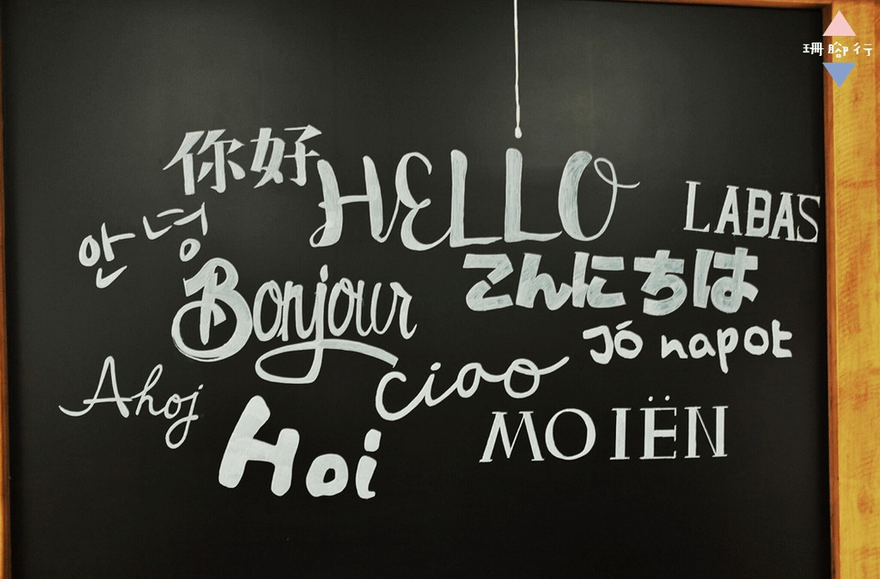 珊腳行
你好
HELLO
LABAS
안녕
Bonjour
こんにちは
Jó napot
Ahoj
ciao
Hoi
MOIËN